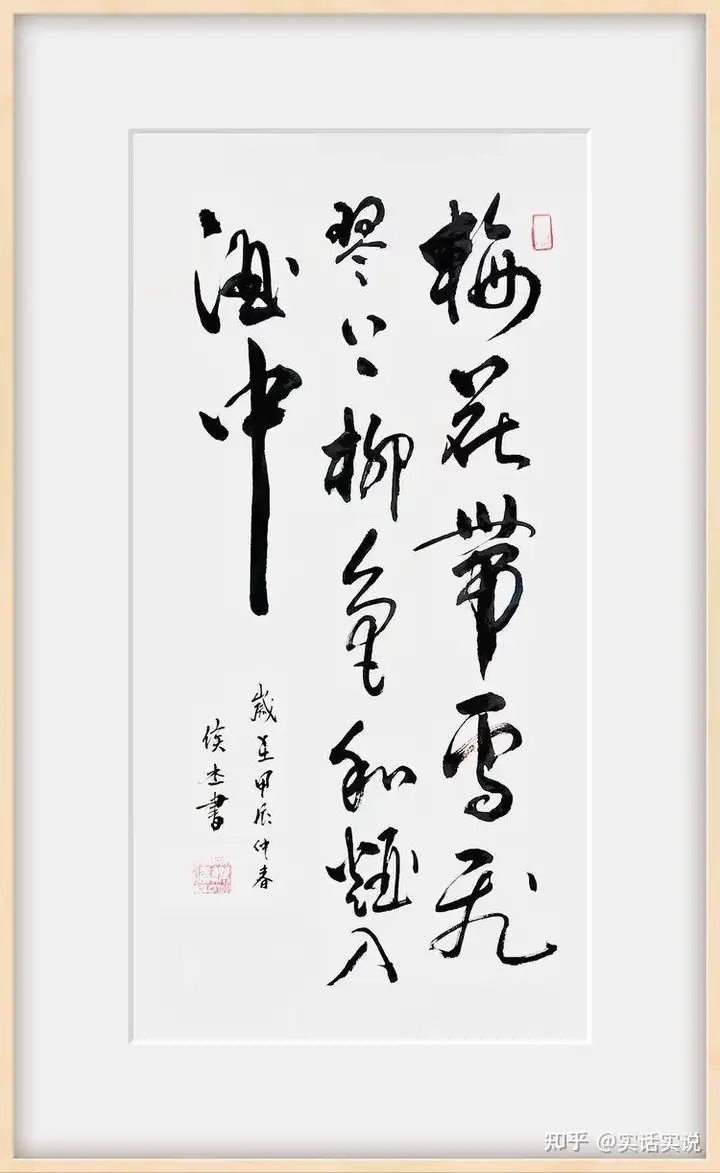 梅花带雪飞
琴上柳色和烟入
酒中
歲在甲辰仲春
侯杰書
知乎 @实话实说